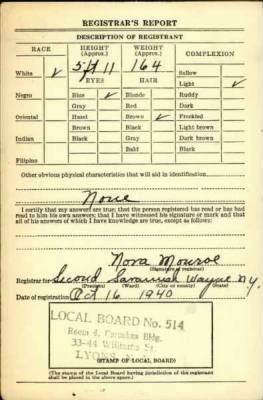 REGISTRAR'S REPORT
DESCRIPTION OF REGISTRANT
RACE HEIGHT (Approx.) WEIGHT (Approx.) COMPLEXION
5 ft 11 164 Sallow
White ✓ EYES HAIR Light ✓
Negro Blue ✓ Blonde Ruddy
Gray Red Dark
Oriental Hazel Brown ✓ Freckled
Brown Black Light brown
Indian Black Gray Dark brown
Bald Black
Filipino
Other obvious physical characteristics that will aid in identification
None
I certify that my answers are true; that the person registered has read or has had
read to him his own answers; that I have witnessed his signature or mark and that
all of his answers of which I have knowledge are true, except as follows:
Nora Monroe
(Signature of registrar)
Registrar for Second Savannah Wayne N.Y.
(Precinct) (Ward) (City or county) (State)
Date of registration Oct 16 1940
LOCAL BOARD No. 514
Room 4, Bldg.
33-44 William St.
LYONS, N.Y.
(STAMP OF LOCAL BOARD)
(The stamp of the Local Board having jurisdiction of the registrant
shall be placed in the above space.)